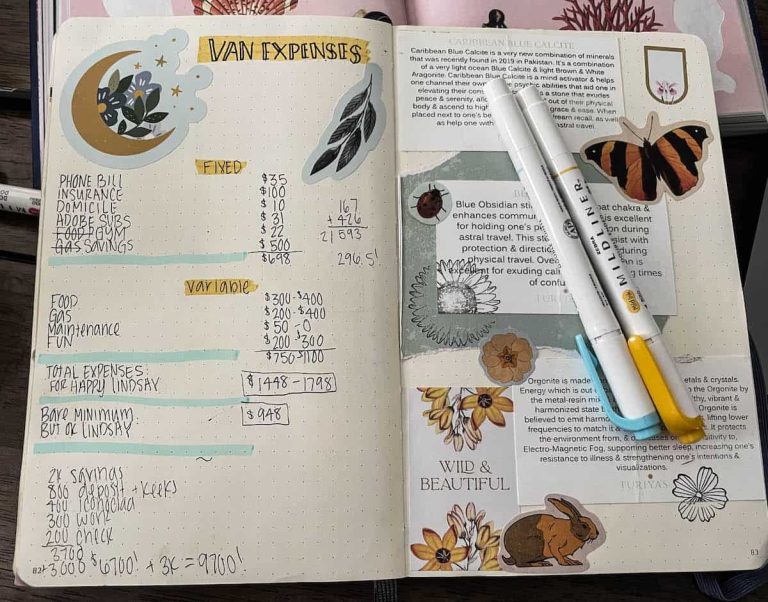 VAN EXPENSES
FIXED
PHONE BILL $35
INSURANCE $100
DOMICILE $10
ADOBE SUBS $31
FOOD GYM $22
GAS SAVINGS $500
$698
167
+ 426
2) 593
296.5!
Variable
FOOD $300-$400
GAS $200-$400
Maintenance $50-0
FUN $200-$300
$750-$1100
TOTAL EXPENSES: $1448-1798
FOR HAPPY LINDSAY
Bare MINIMUM $948
BUT OK LINDSAY
2k savings
800 deposit + keeks
400
300 work
200 check
3700
+3000 $6700! + 3k = 9700!
82
CARIBBEAN BLUE CALCITE
Caribbean Blue Calcite is a very new combination of minerals
that was recently found in 2019 in Pakistan. It's a combination
of a very light ocean Blue Calcite & light Brown & White
Aragonite. Caribbean Blue Calcite is a mind activator & helps
one channel their psychic abilities that aid one in
elevating their is a stone that exudes
peace & serenity, out of their physical
body & ascend to grace & ease. When
placed next to one's dream recall, as well
as help one with astral travel.
Blue Obsidian throat chakra &
enhances is excellent
for holding one's during
astral travel. This with
protection & during
physical travel. is
excellent for exuding times
of
TURIYAS
Orgonite is made metals & crystals.
Energy which is out the Orgonite by
the metal-resin vibrant &
harmonized state Orgonite is
believed to emit lifting lower
frequencies to match it protects
the environment from, & to,
Electro-Magnetic Fog, supporting better sleep, increasing one's
resistance to illness & strengthening one's intentions &
visualizations.
TURIYAS
WILD &
BEAUTIFUL
ZEBRA
MILDLINER
83